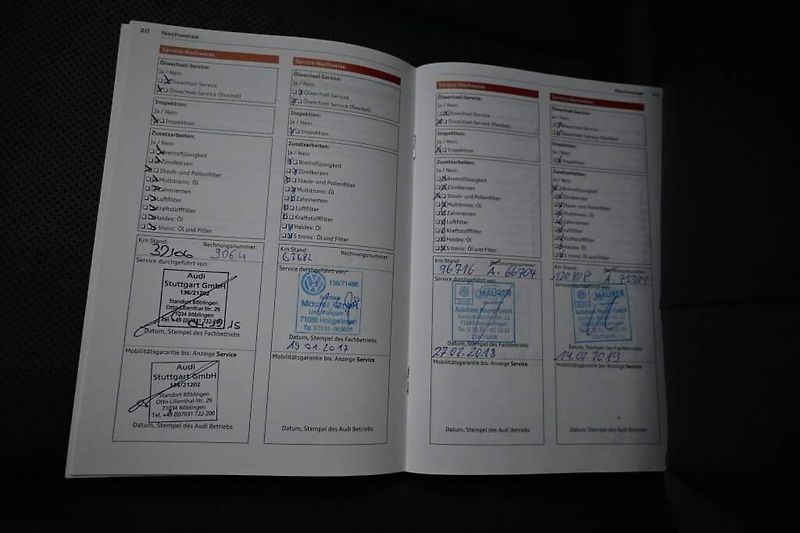 20 Nachweise
Service-Nachweise
Ölwechsel-Service:
Ja / Nein
Ölwechsel-Service
Ölwechsel-Service (flexibel)
Inspektion:
Ja / Nein
Inspektion
Zusatzarbeiten:
Ja / Nein
Bremsflüssigkeit
Zündkerzen
Staub- und Pollenfilter
Multitronic: Öl
Zahnriemen
Luftfilter
Kraftstofffilter
Haldex: Öl
S tronic: Öl und Filter
Km Stand: Rechnungsnummer:
9064
Service durchgeführt von:
Audi
Stuttgart GmbH
136/21202
Standort Böblingen
Otto-Lilienthal-Str. 29
71034 Böblingen
Tel. +49 (0)7031 722-200
Datum, Stempel des Fachbetriebs
Mobilitätsgarantie bis: Anzeige Service
Audi
Stuttgart GmbH
136/21202
Standort Böblingen
Otto-Lilienthal-Str. 29
71034 Böblingen
Tel. +49 (0)7031 722-200
Datum, Stempel des Audi Betriebs
Service-Nachweise
Ölwechsel-Service:
Ja / Nein
Ölwechsel-Service
Ölwechsel-Service (flexibel)
Inspektion:
Ja / Nein
Inspektion
Zusatzarbeiten:
Ja / Nein
Bremsflüssigkeit
Zündkerzen
Staub- und Pollenfilter
Multitronic: Öl
Zahnriemen
Luftfilter
Kraftstofffilter
Haldex: Öl
S tronic: Öl und Filter
Km Stand: Rechnungsnummer:
63682
Service durchgeführt von:
136/71496
Maurer GmbH
71088 Holzgerlingen
Datum, Stempel des Fachbetriebs
19.01.2017
Mobilitätsgarantie bis: Anzeige Service
Datum, Stempel des Audi Betriebs
Service-Nachweise
Ölwechsel-Service:
Ja / Nein
Ölwechsel-Service
Ölwechsel-Service (flexibel)
Inspektion:
Ja / Nein
Inspektion
Zusatzarbeiten:
Ja / Nein
Bremsflüssigkeit
Zündkerzen
Staub- und Pollenfilter
Multitronic: Öl
Zahnriemen
Luftfilter
Kraftstofffilter
Haldex: Öl
S tronic: Öl und Filter
Km Stand:
96716 A. 66704
Service durchgeführt von:
MAURER
Autohaus Maurer GmbH
Datum, Stempel des Fachbetriebs
27.02.2018
Mobilitätsgarantie bis: Anzeige Service
Datum, Stempel des Audi Betriebs
Nachweise
Service-Nachweise
Ölwechsel-Service:
Ja / Nein
Ölwechsel-Service
Ölwechsel-Service (flexibel)
Inspektion:
Ja / Nein
Inspektion
Zusatzarbeiten:
Ja / Nein
Bremsflüssigkeit
Zündkerzen
Staub- und Pollenfilter
Multitronic: Öl
Zahnriemen
Luftfilter
Kraftstofffilter
Haldex: Öl
S tronic: Öl und Filter
Km Stand:
120808
Service durchgeführt von:
MAURER
Datum, Stempel des Fachbetriebs
14.02.2019
Mobilitätsgarantie bis: Anzeige Service
Datum, Stempel des Audi Betriebs